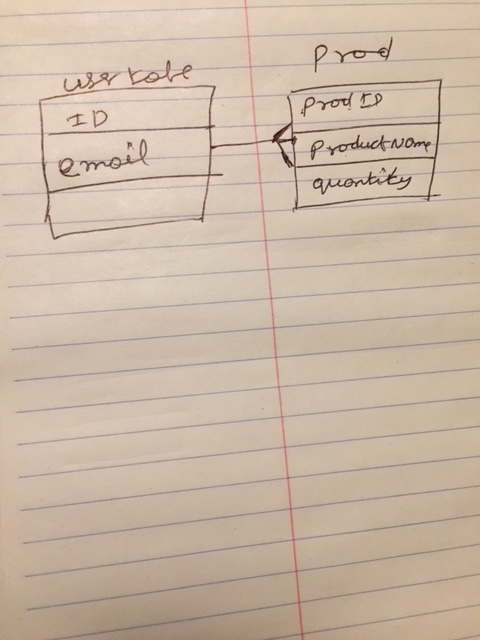 user table
ID
email
Prod
Prod ID
ProductName
quantity